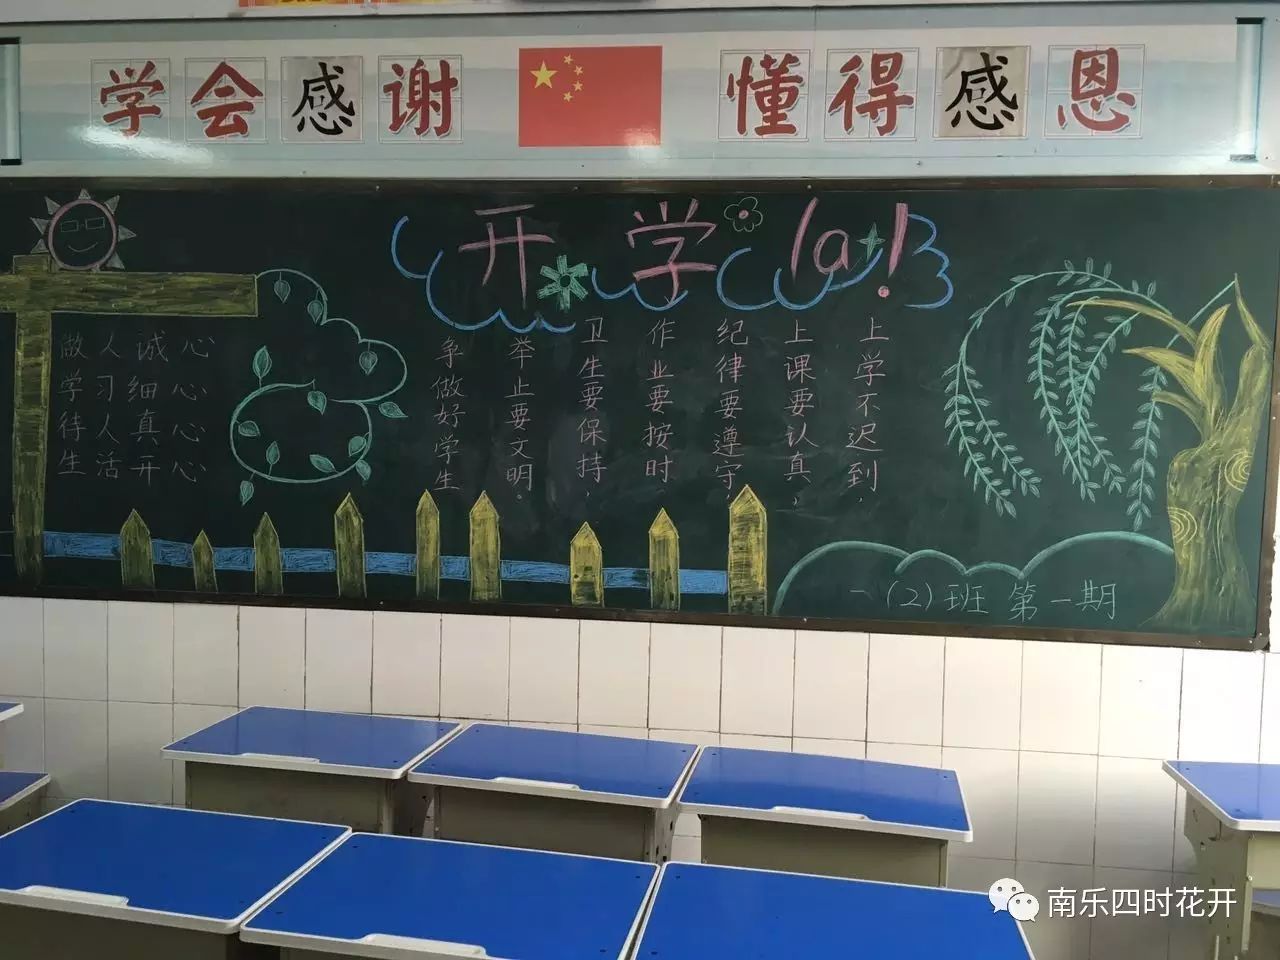 学会感谢 懂得感恩
开学la!
做人诚心
学习细心
待人真心
生活开心
上学不迟到，
上课要认真，
纪律要遵守，
作业要按时
卫生要保持，
举止要文明。
争做好学生
一(2)班 第一期
南乐四时花开